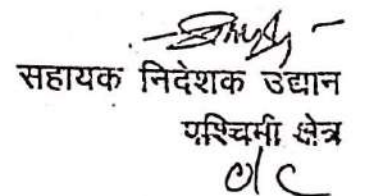 सहायक निदेशक उद्यान
पश्चिमी क्षेत्र
o/c